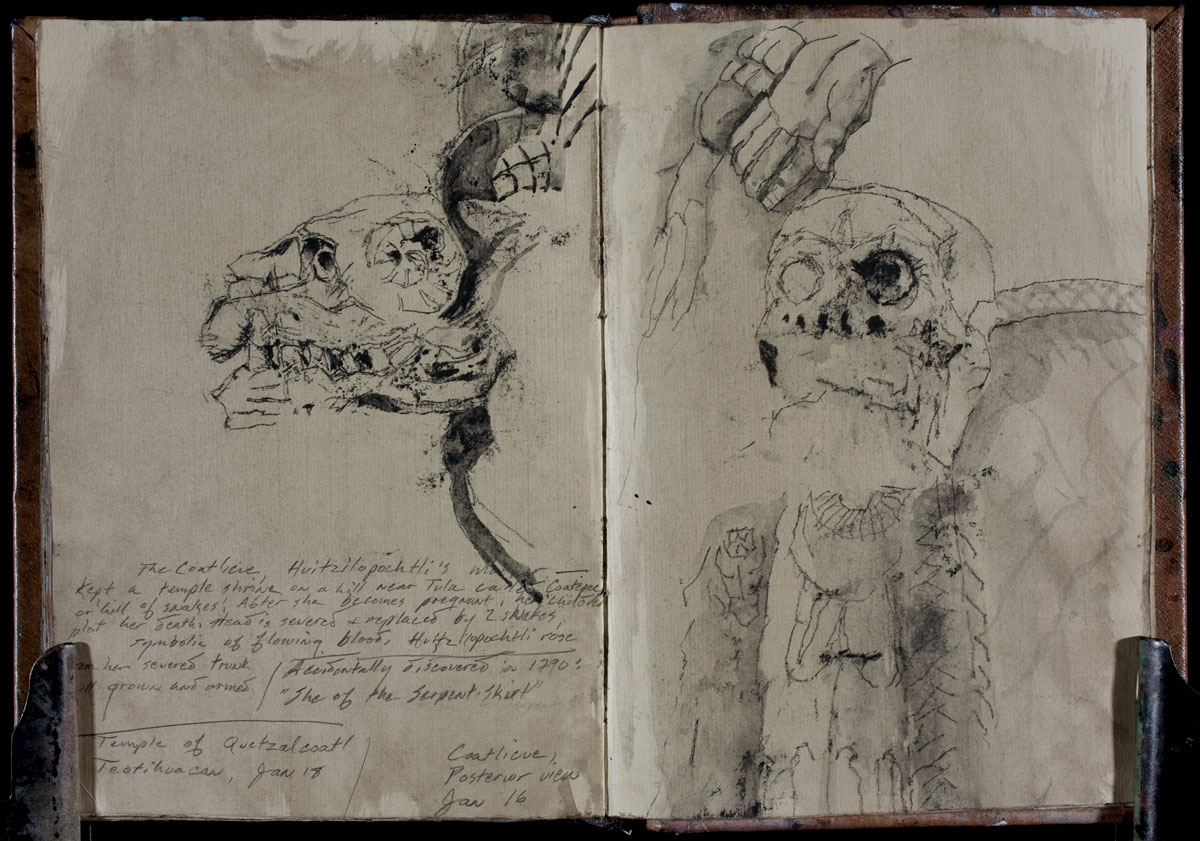 The Coatlicue, Huitzilopochtli's
Kept a temple shrine on a hill near Tula called Coatepec,
or hill of snakes. After she becomes pregnant, her children
plot her death. Head is severed & replaced by 2 snakes,
symbolic of flowing blood, Huitzilopochtli rose
her severed trunk,
grown and armed
Accidentally discovered in 1790:
"She of the Serpent-Skirt"
Temple of Quetzalcoatl
Teotihuacan, Jan 18
Coatlicue,
Posterior view
Jan 16